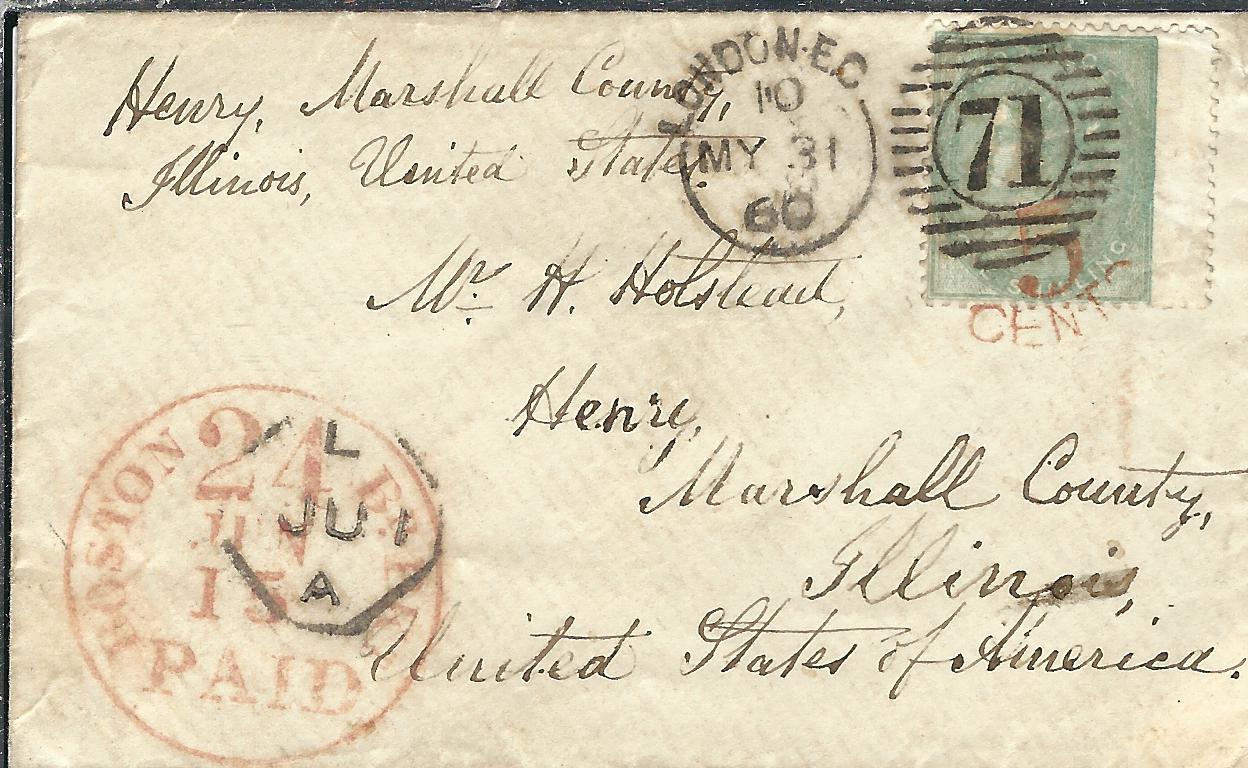 Henry, Marshall County,
Illinois, United States.
LONDON·E.C
10
MY 31
66
71
SHILLING
5
CENTS
Mr. H. Holstead,
Henry,
Marshall County,
Illinois,
United States of America.
BOSTON BR. PK
24
JUN
15
PAID
L
JU 1
A